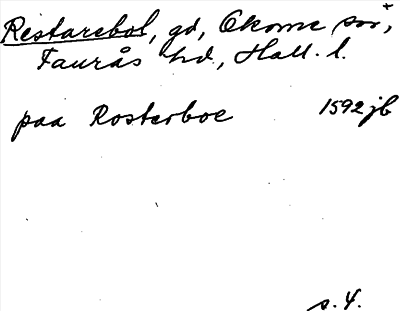 Restarebol, gd, Okome sn,
Faurås hd., Hall. l.
paa Rosterboe 1592 jb
s. 4.